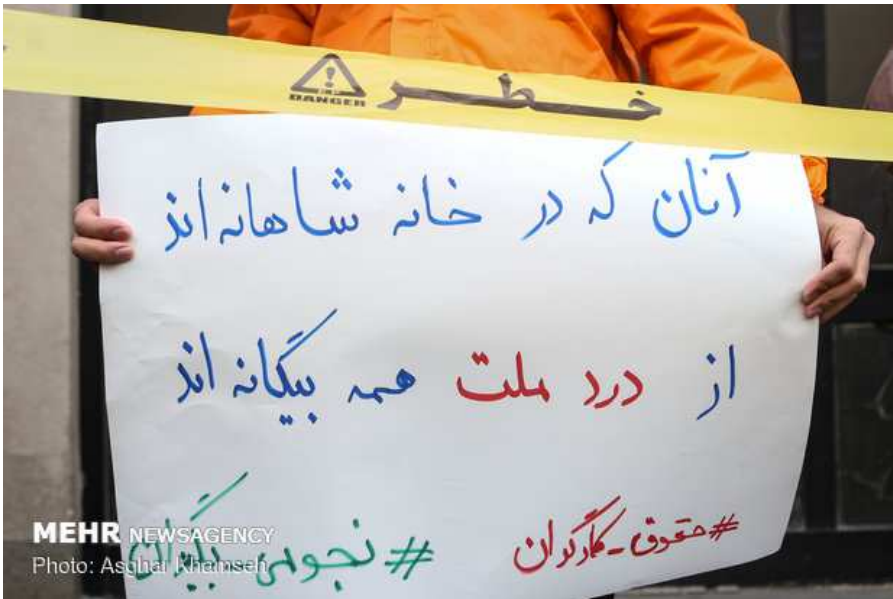 خطر
DANGER
آنان که در خانه شاهانه اند
از درد ملت همه بیگانه اند
#حقوق-کارگران
#نجومی-بگیران
MEHR NEWSAGENCY
Photo: Asghar Khamseh